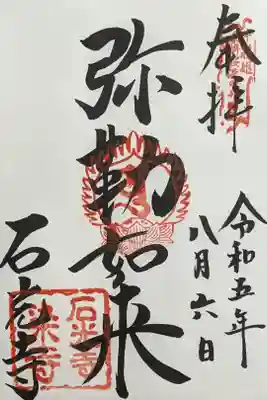 奉拝
令和五年
八月六日
弥勒如来
石光寺
石光寺